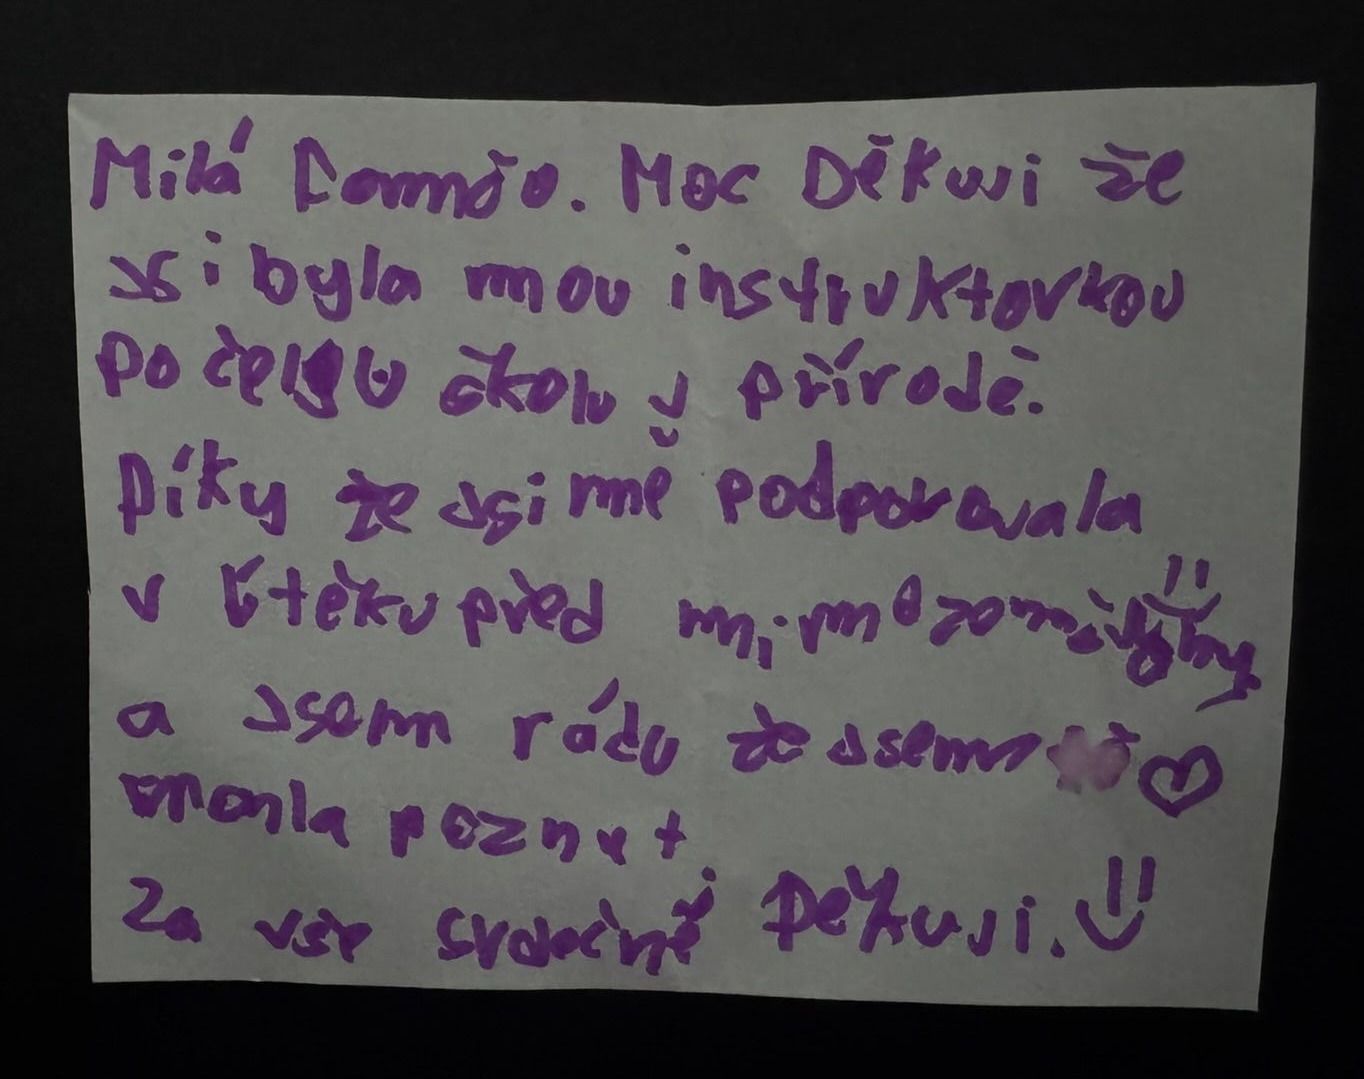 Milá Domčo. Moc Děkuji že
jsi byla mou instruktorkou
Po čelou školu v přírodě.
Díky že jsi mě podporovala
v Útěku před
a jsem rádu že jsem tě
mohla poznat.
Za vše srdečně Děkuji.